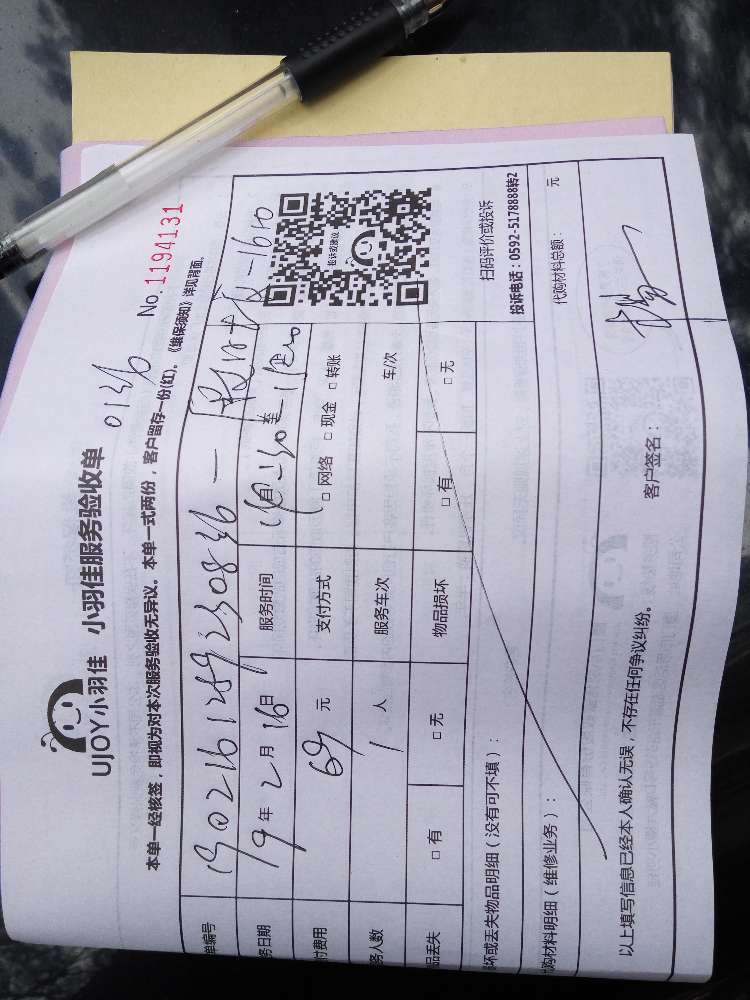 UJOY小羽佳 小羽佳服务验收单 0136
No.1194131
本单一经核签，即视为对本次服务验收无异议。本单一式两份，客户留存一份(红)。《维保须知》详见背面.
单编号
务日期 19年2月16日 服务时间 至
付费用 69元 支付方式 □ 网络 □ 现金 □ 转账
务人数 1人 服务车次 车/次
品丢失 □ 有 □ 无 物品损坏 □ 有 □ 无
投诉或建议
扫码评价或投诉
投诉电话：0592-5178888转2
坏或丢失物品明细（没有可不填）：
购材料明细（维修业务）：
代购材料总额： 元
以上填写信息已经本人确认无误，不存在任何争议纠纷。
客户签名：